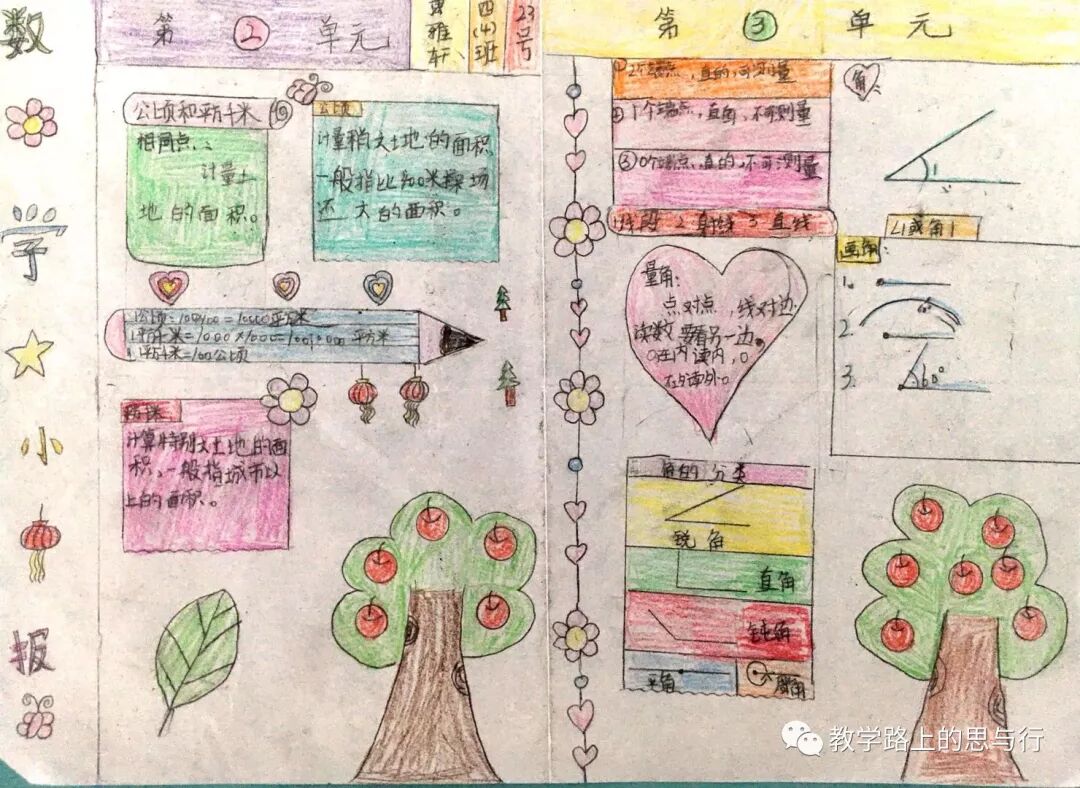 数
学
小
报
第 ② 单元
雅轩
四(4)班
23号
第 ③ 单元
公顷和平方千米
相同点:
计量土
地的面积。
公顷
计量稍大土地的面积
一般指比400米操场
还大的面积。
1公顷=100×100=10000平方米
1平方千米=1000×1000=1000000平方米
1平方千米=100公顷
计算特别大土地的面
积,一般指城市以
上的面积。
①2个端点,直的,可测量
②1个端点,直的,不可测量
③0个端点,直的,不可测量
1线段 2射线 3直线
量角:
点对点,线对边,
读数要看另一边。
0在内读内,0
在外读外。
角的分类
锐角
直角
钝角
平角
周角
角
1
∠1或角1
画角:
1.
2.
3.
60°
教学路上的思与行